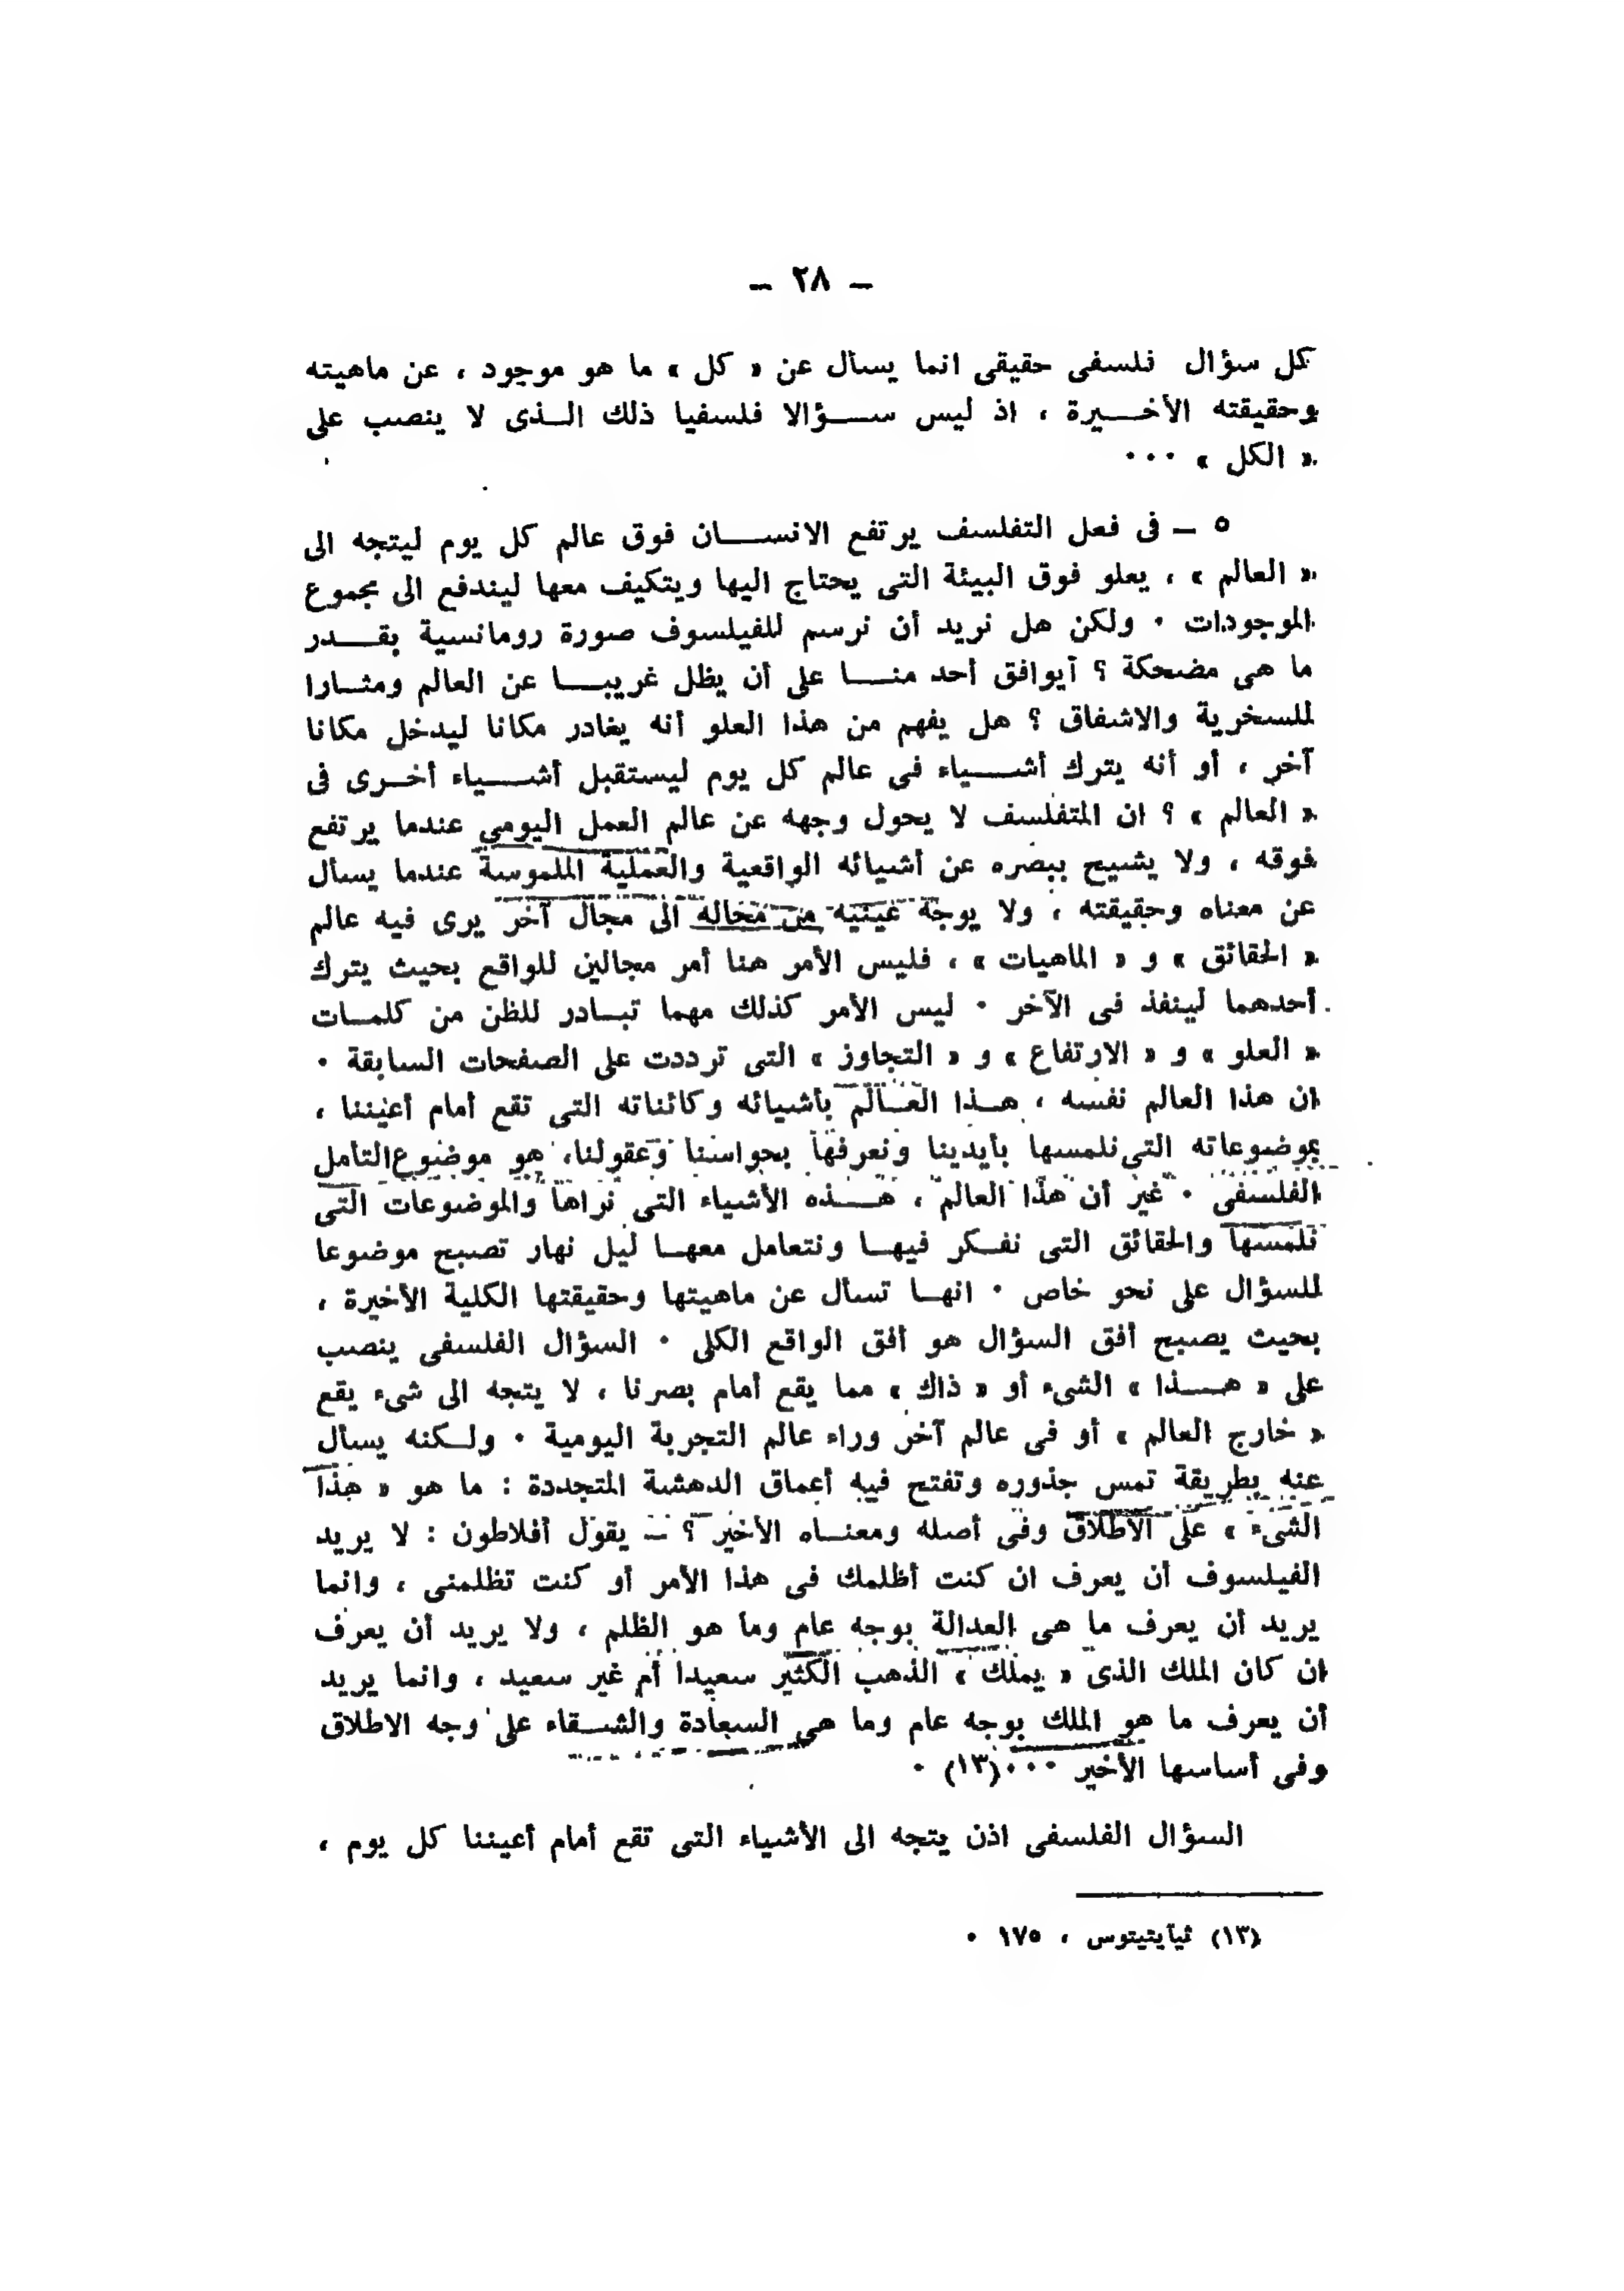 – ٢٨ –
كل سؤال فلسفى حقيقى انما يسأل عن « كل » ما هو موجود ، عن ماهيته
وحقيقته الأخـــيرة ، اذ ليس ســـؤالا فلسفيا ذلك الـذى لا ينصب على
« الكل » ٠٠٠
٥ – فى فعل التفلسف يرتفع الانســـان فوق عالم كل يوم ليتجه الى
« العالم » ، يعلو فوق البيئة التى يحتاج اليها ويتكيف معها ليندفع الى مجموع
الموجودات ٠ ولكن هل نريد أن نرسم للفيلسوف صورة رومانسية بقـــدر
ما هى مضحكة ؟ أيوافق أحد منـــا على أن يظل غريبـــا عن العالم ومثـارا
للسخرية والاشفاق ؟ هل يفهم من هذا العلو أنه يغادر مكانا ليدخل مكانا
آخر ، أو أنه يترك أشـــياء فى عالم كل يوم ليستقبل أشـــياء أخـرى فى
« العالم » ؟ ان المتفلسف لا يحول وجهه عن عالم العمل اليومى عندما يرتفع
فوقه ، ولا يشيح ببصره عن أشيائه الواقعية والعملية الملموسة عندما يسأل
عن معناه وحقيقته ، ولا يوجه عينيه من مجاله الى مجال آخر يرى فيه عالم
« الحقائق » و « الماهيات » ، فليس الأمر هنا أمر مجالين للواقع بحيث يترك
أحدهما لينفذ فى الآخر ٠ ليس الأمر كذلك مهما تبـادر للظن من كلمـات
« العلو » و « الارتفاع » و « التجاوز » التى ترددت على الصفحات السابقة ٠
ان هذا العالم نفسه ، هـذا العـالم بأشيائه وكائناته التى تقع أمام أعيننا ،
بموضوعاته التى نلمسها بأيدينا ونعرفها بحواسنا وعقولنا، هو موضوع التأمل
الفلسفى ٠ غير أن هذا العالم ، هـــذه الأشياء التى نراها والموضوعات التى
نلمسها والحقائق التى نفـكر فيهـا ونتعامل معهـا ليل نهار تصبح موضوعا
للسؤال على نحو خاص ٠ انهـا تسأل عن ماهيتها وحقيقتها الكلية الأخيرة ،
بحيث يصبح أفق السؤال هو أفق الواقع الكلى ٠ السؤال الفلسفى ينصب
على « هـــذا » الشىء أو « ذاك » مما يقع أمام بصرنا ، لا يتجه الى شىء يقع
« خارج العالم » أو فى عالم آخر وراء عالم التجربة اليومية ٠ ولـكنه يسأل
عنه بطريقة تمس جذوره وتفتح فيه أعماق الدهشة المتجددة : ما هو « هذا
الشىء » على الاطلاق وفى أصله ومعنـاه الأخير ؟ – يقول أفلاطون : لا يريد
الفيلسوف أن يعرف ان كنت أظلمك فى هذا الأمر أو كنت تظلمنى ، وانما
يريد أن يعرف ما هى العدالة بوجه عام وما هو الظلم ، ولا يريد أن يعرف
ان كان الملك الذى « يملك » الذهب الكثير سعيدا أم غير سعيد ، وانما يريد
أن يعرف ما هو الملك بوجه عام وما هى السعادة والشـقاء على وجه الاطلاق
وفى أساسها الأخير ٠٠٠(١٣) ٠
السؤال الفلسفى اذن يتجه الى الأشياء التى تقع أمام أعيننا كل يوم ،
(١٣) ثيآيتيتوس ، ١٧٥ ٠